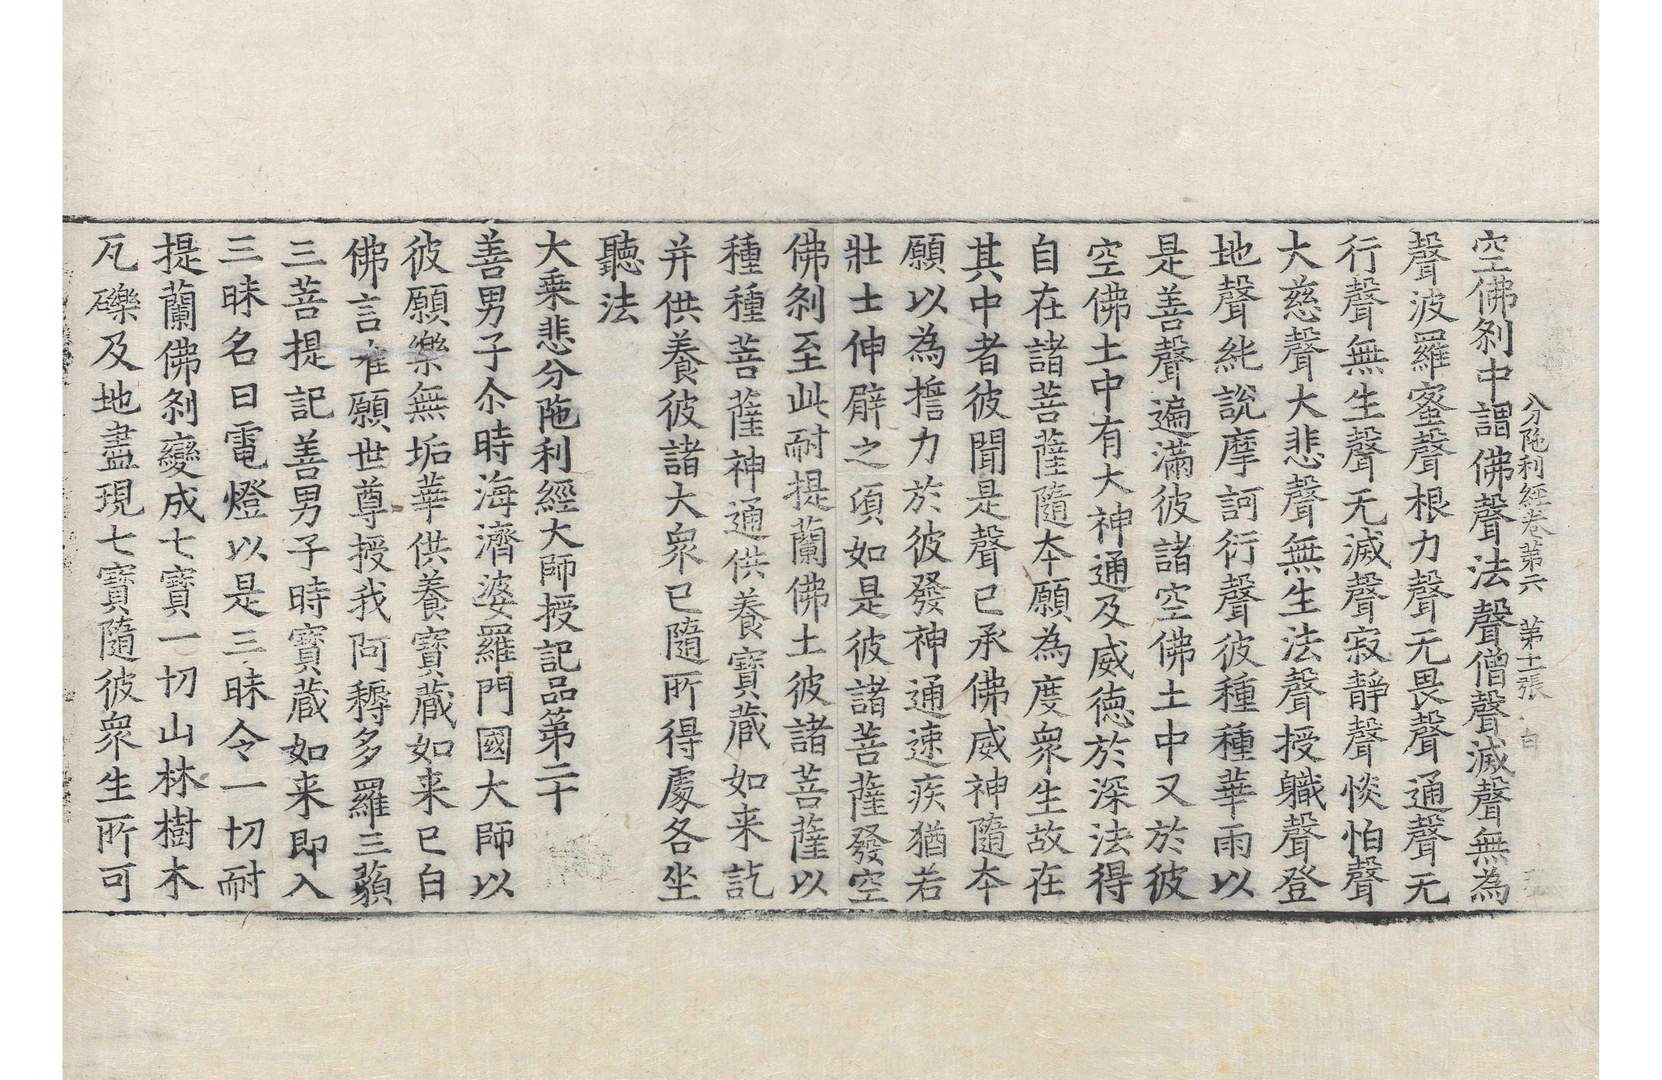 分陁利經卷第六 第十二張 白
空佛刹中謂佛聲法聲僧聲滅聲無為
聲波羅蜜聲根力聲无畏聲通聲无
行聲無生聲无滅聲寂靜聲惔怕聲
大慈聲大悲聲無生法聲授軄聲登
地聲純說摩訶衍聲彼種種華雨以
是善聲遍滿彼諸空佛土中又於彼
空佛土中有大神通及威德於深法得
自在諸菩薩隨夲願為度衆生故在
其中者彼聞是聲已承佛威神隨夲
願以為擔力於彼發神通速疾猶若
壯士伸臂之湏如是彼諸菩薩發空
佛刹至此耐提蘭佛土彼諸菩薩以
種種菩薩神通供養寶藏如来訖
并供養彼諸大衆已隨所得處各坐
聽法
大乗悲分陁利經大師授記品第二十
善男子尒時海濟婆羅門國大師以
彼願樂無垢華供養寶藏如来已白
佛言唯願世尊授我阿耨多羅三藐
三菩提記善男子時寶藏如来即入
三昧名曰電燈以是三昧令一切耐
提蘭佛刹變成七寶一切山林樹木
瓦礫及地盡現七寶隨彼衆生所可